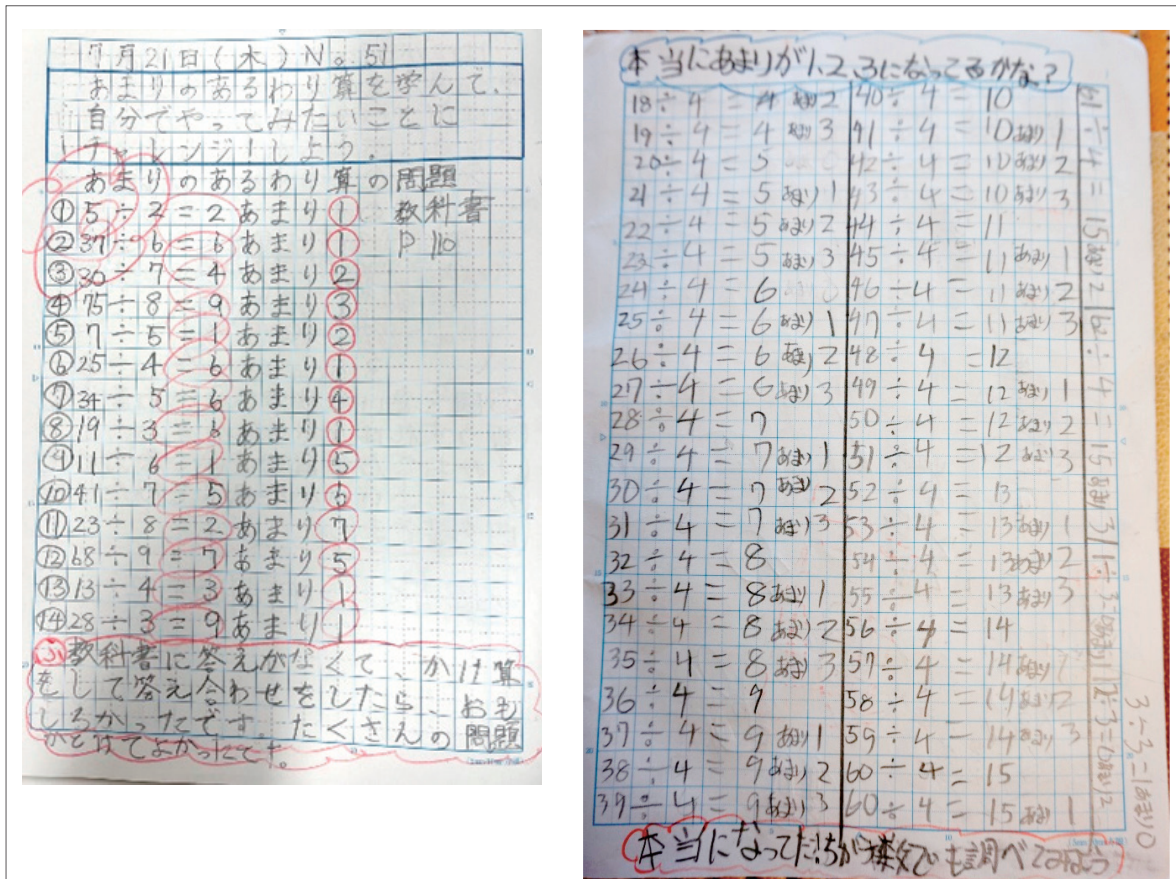 7月21日(木)No.51
あまりのあるわり算を学んで、
自分でやってみたいことに
チャレンジ!しよう。
あまりのあるわり算の問題
①5÷2=2あまり1 教科書
②37÷6=6あまり1 P110
③30÷7=4あまり2
④75÷8=9あまり3
⑤7÷5=1あまり2
⑥25÷4=6あまり1
⑦34÷5=6あまり4
⑧19÷3=6あまり1
⑨11÷6=1あまり5
⑩41÷7=5あまり6
⑪23÷8=2あまり7
⑫68÷9=7あまり5
⑬13÷4=3あまり1
⑭28÷3=9あまり1
ふ教科書に答えがなくて、かけ算
をして答え合わせをしたら、おも
しろかったです。たくさんの問題
がとけてよかったです。
本当にあまりが1、2、3になってるかな?
18÷4=4あまり2
19÷4=4あまり3
20÷4=5
21÷4=5あまり1
22÷4=5あまり2
23÷4=5あまり3
24÷4=6
25÷4=6あまり1
26÷4=6あまり2
27÷4=6あまり3
28÷4=7
29÷4=7あまり1
30÷4=7あまり2
31÷4=7あまり3
32÷4=8
33÷4=8あまり1
34÷4=8あまり2
35÷4=8あまり3
36÷4=9
37÷4=9あまり1
38÷4=9あまり2
39÷4=9あまり3
40÷4=10
41÷4=10あまり1
42÷4=10あまり2
43÷4=10あまり3
44÷4=11
45÷4=11あまり1
46÷4=11あまり2
47÷4=11あまり3
48÷4=12
49÷4=12あまり1
50÷4=12あまり2
51÷4=12あまり3
52÷4=13
53÷4=13あまり1
54÷4=13あまり2
55÷4=13あまり3
56÷4=14
57÷4=14あまり1
58÷4=14あまり2
59÷4=14あまり3
60÷4=15
60÷4=15あまり1
61÷4=15あまり2
÷4=15あまり3
1÷3=0あまり1
2÷3=0あまり2
3÷3=1あまり0
本当になってた!ちがう数でも調べてみよう